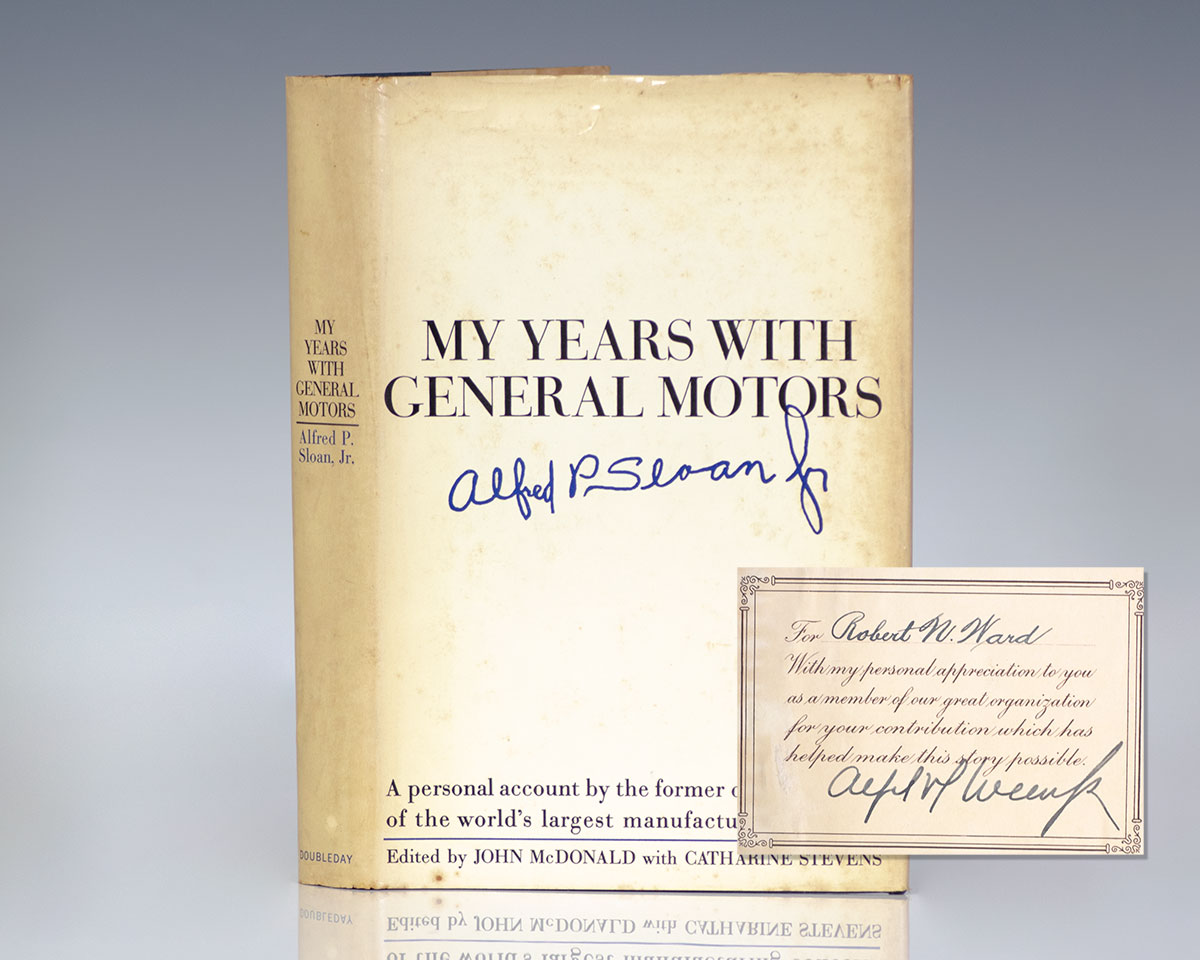 MY
YEARS
WITH
GENERAL
MOTORS
Alfred P.
Sloan, Jr.
DOUBLEDAY
MY YEARS WITH
GENERAL MOTORS
Alfred P. Sloan Jr
A personal account by the former
of the world's largest manufactu
Edited by JOHN McDONALD with CATHARINE STEVENS
For Robert N. Ward
With my personal appreciation to you
as a member of our great organization
for your contribution which has
helped make this story possible.